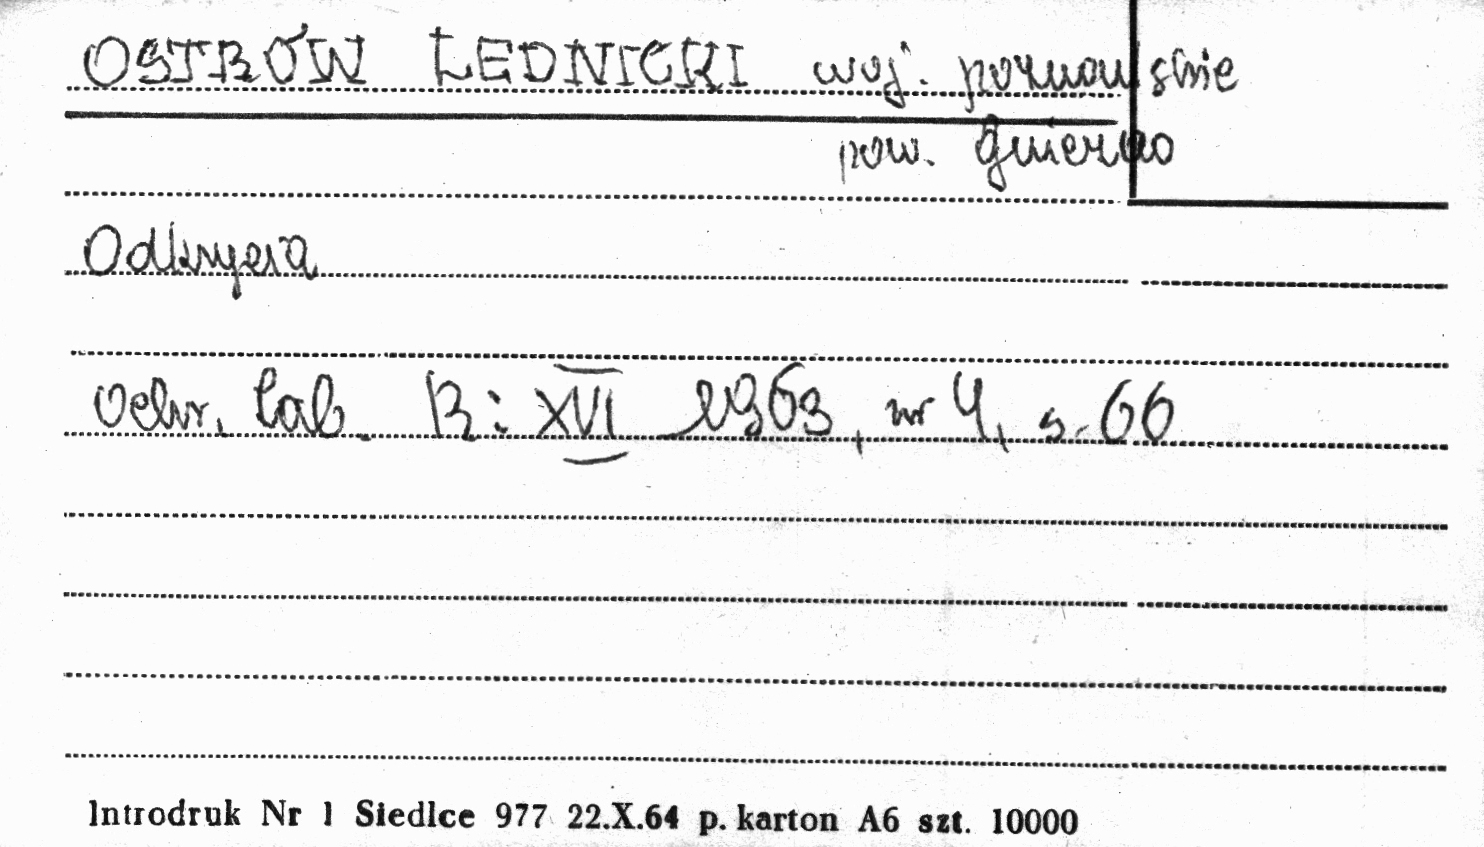 OSTRÓW ŁEDNICKI woj. poznańskie
pow. Gniezno
Odkrycia
Ochr. Zab. R: XVI 1963, nr 4, s. 66
Introdruk Nr 1 Siedlce 977 22.X.64 p. karton A6 szt. 10000